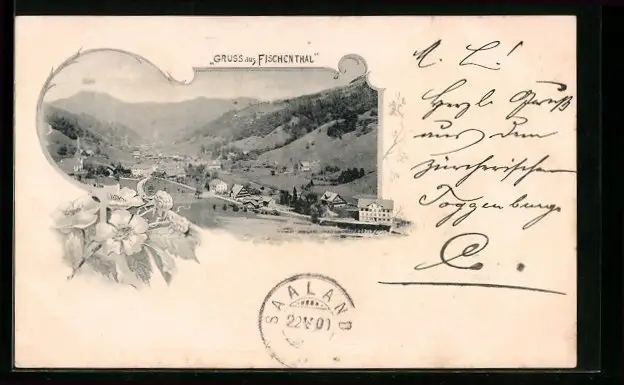 „GRUSS aus FISCHENTHAL“
M. L!
Herzl. Gruß
aus dem
zürcherischen
Toggenburg.
E.
SAALAND
22 V 01